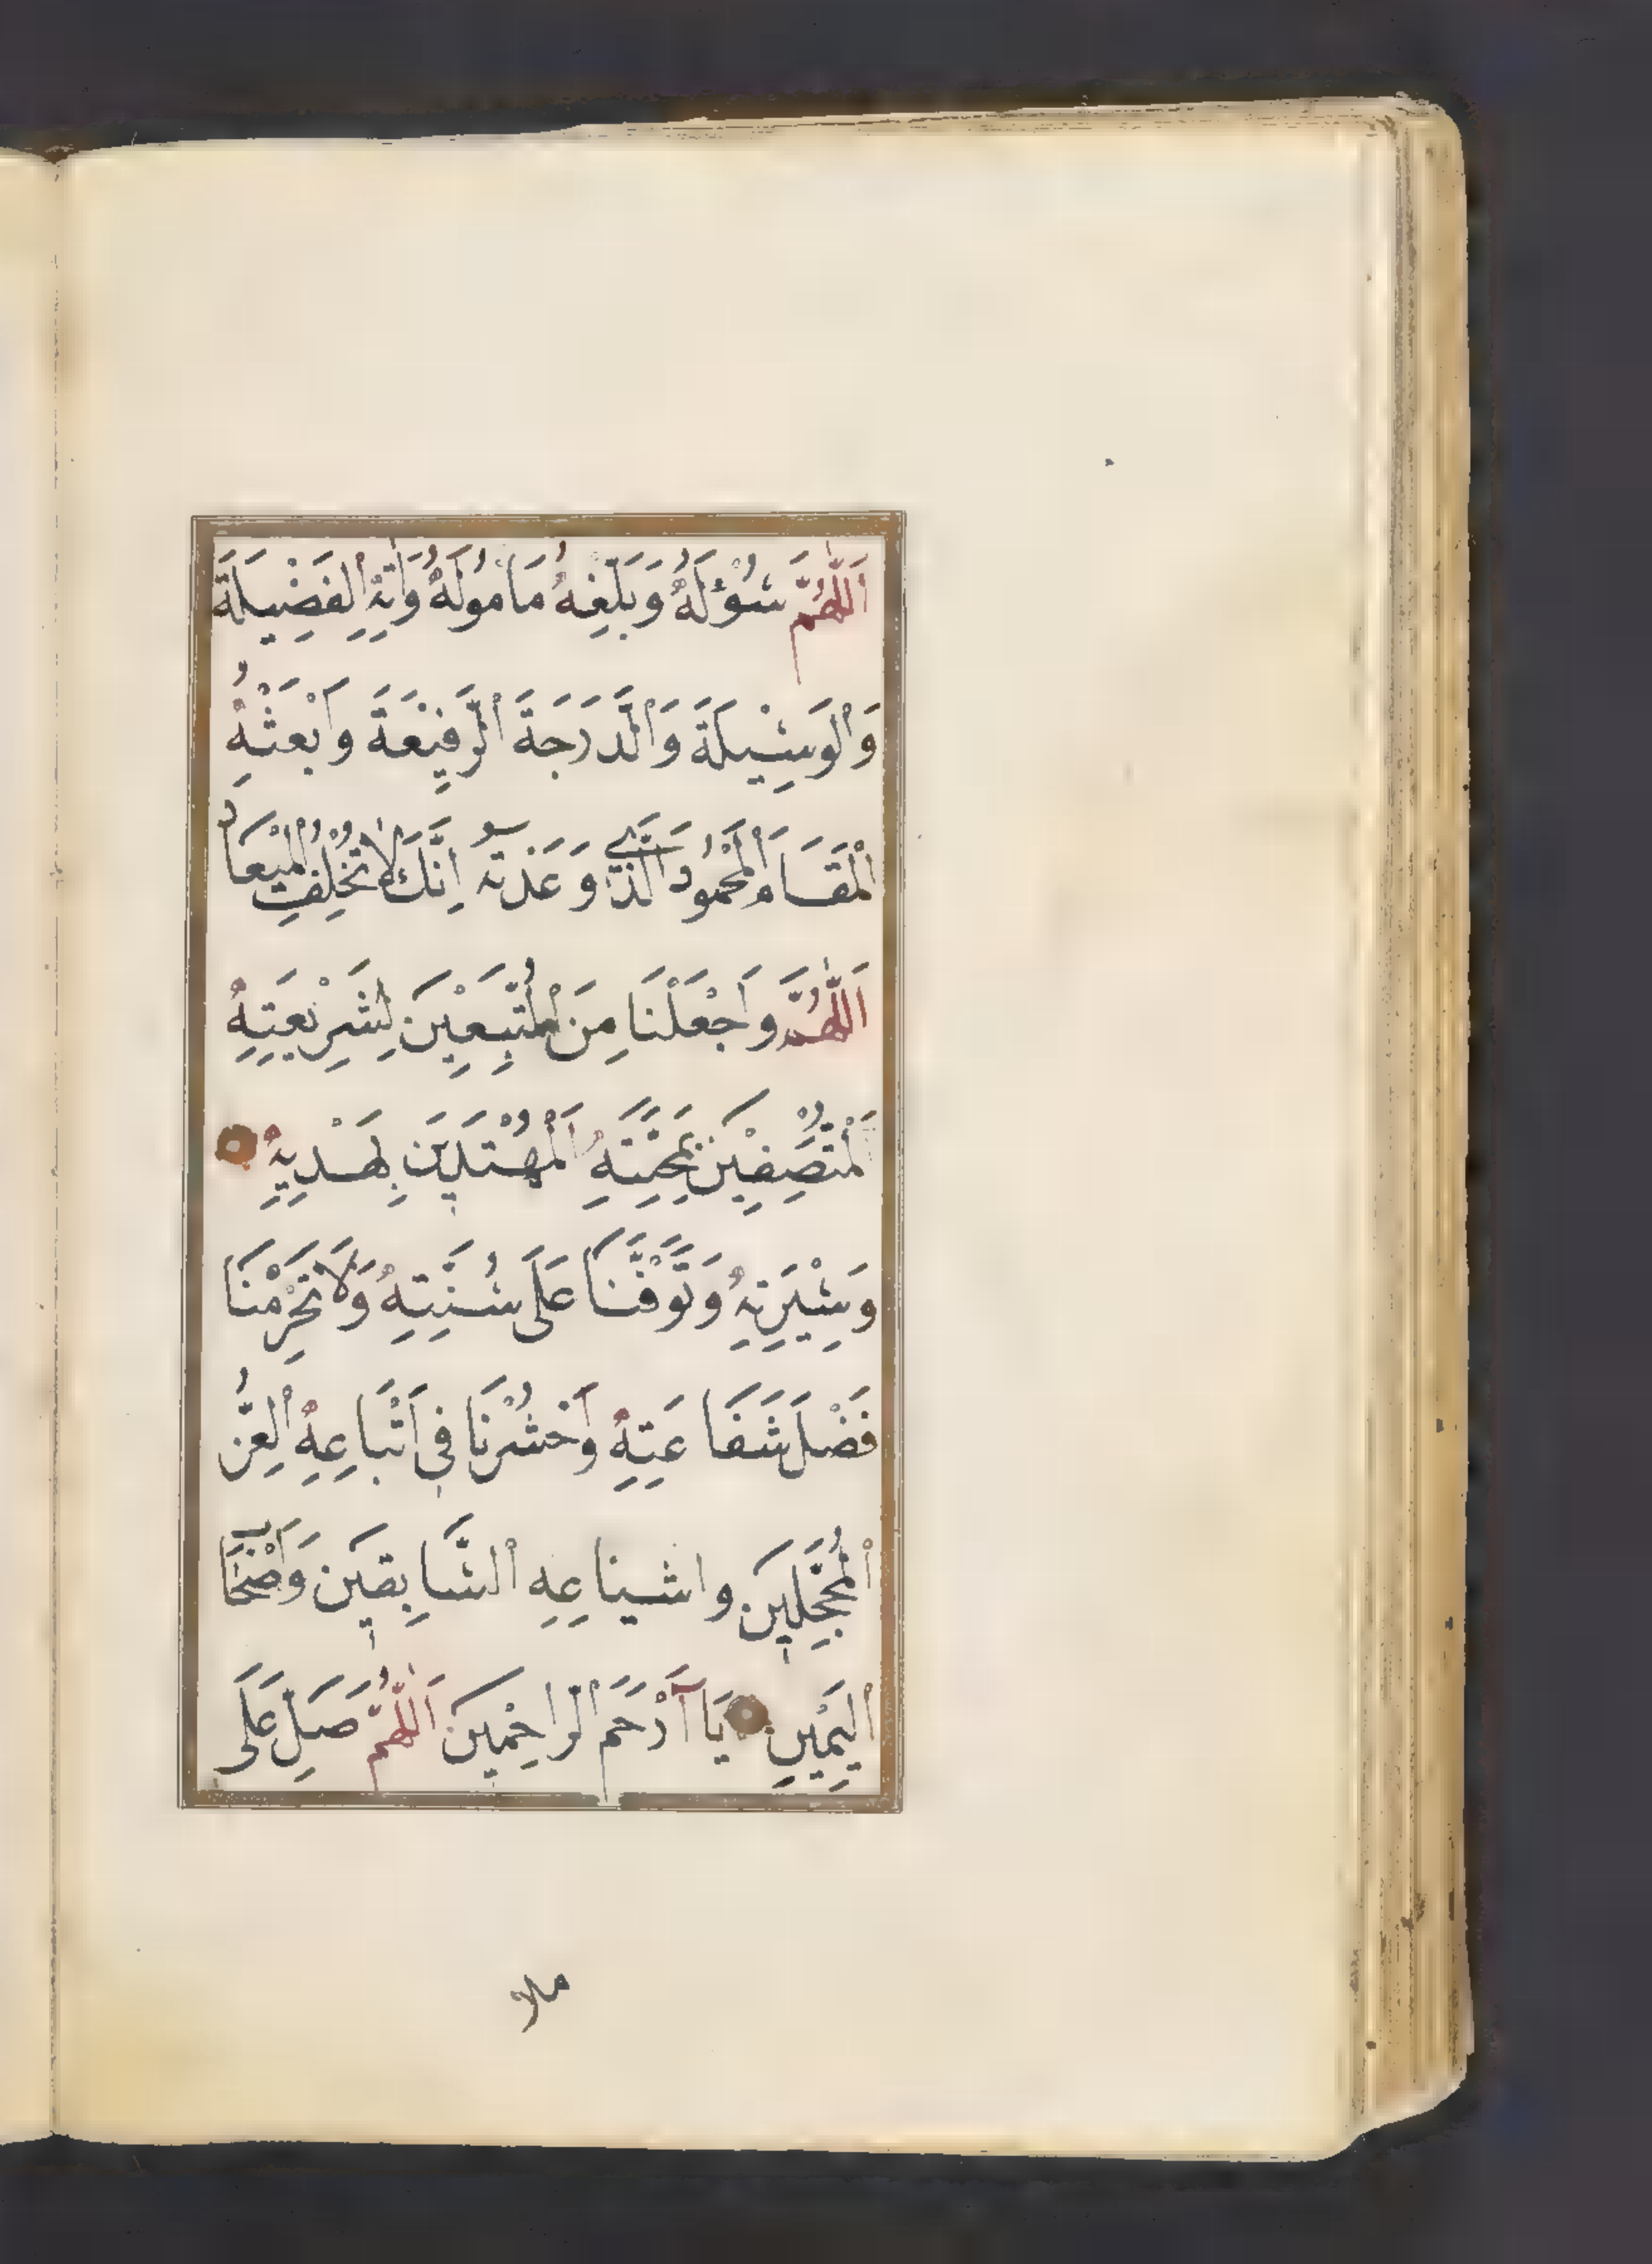 اَللّٰهُمَّ سُؤْلَهُ وَبَلِّغْهُ مَأْمُولَهُ وَاٰتِهِ الْفَضِيلَةَ
وَالْوَسِيْلَةَ وَالدَّرَجَةَ الرَّفِيْعَةَ وَابْعَثْهُ
الْمَقَامَ الْمَحْمُودَ الَّذِي وَعَدْتَهُ اِنَّكَ لَا تُخْلِفُ الْمِيْعَادَ
اَللّٰهُمَّ وَاجْعَلْنَا مِنَ الْمُتَّبِعِيْنَ لِشَرِيْعَتِهِ
الْمُتَّصِفِيْنَ بِمَحَبَّتِهِ الْمُهْتَدِيْنَ بِهَدْيِهِ
وَسِيْرَتِهِ وَتَوَفَّنَا عَلَى سُنَّتِهِ وَلَا تَحْرِمْنَا
فَضْلَ شَفَاعَتِهِ وَاحْشُرْنَا فِي اَتْبَاعِهِ الْغُرِّ
الْمُحَجَّلِينَ وَاشْيَاعِهِ السَّابِقِينَ وَاَصْحَابِ
الْيَمِيْنِ يَا اَرْحَمَ الرَّاحِمِيْنَ اَللّٰهُمَّ صَلِّ عَلَى
ملا